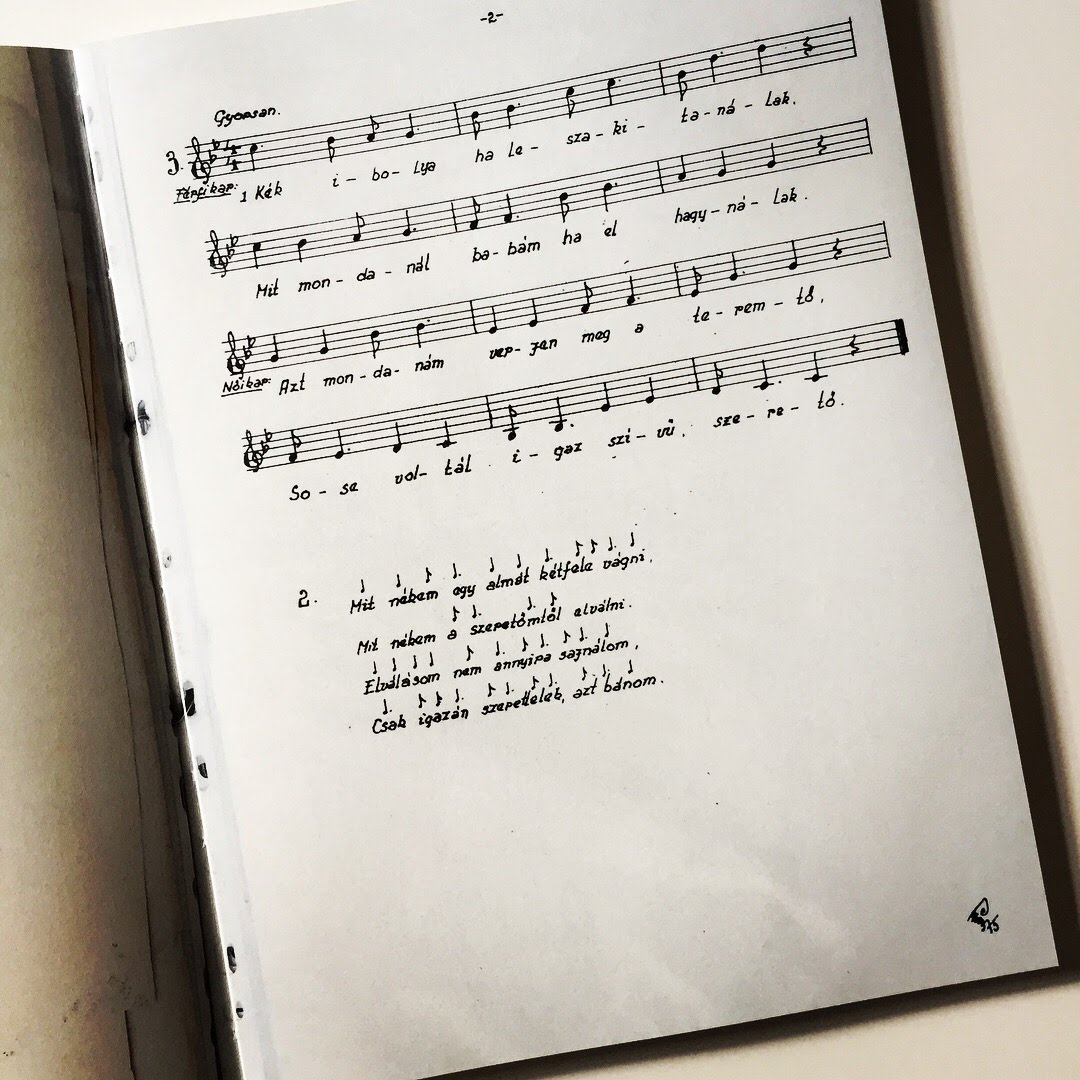 -2-
Gyorsan.
3.
Férfikar: 1 Kék i - bo - lya ha le - sza - ki - ta - ná - lak.
Mit mon - da - nál ba - bám ha el hagy - ná - lak.
Nőikar: Azt mon - da - nám ver - jen meg a te - rem - tő,
So - se vol - tál i - gaz szi - vü, sze - re - tő.
2. Mit nékem egy almát kétfele vágni,
Mit nékem a szeretőmtől elválni.
Elválásom nem annyira sajnálom,
Csak igazán szerettelek, azt bánom.